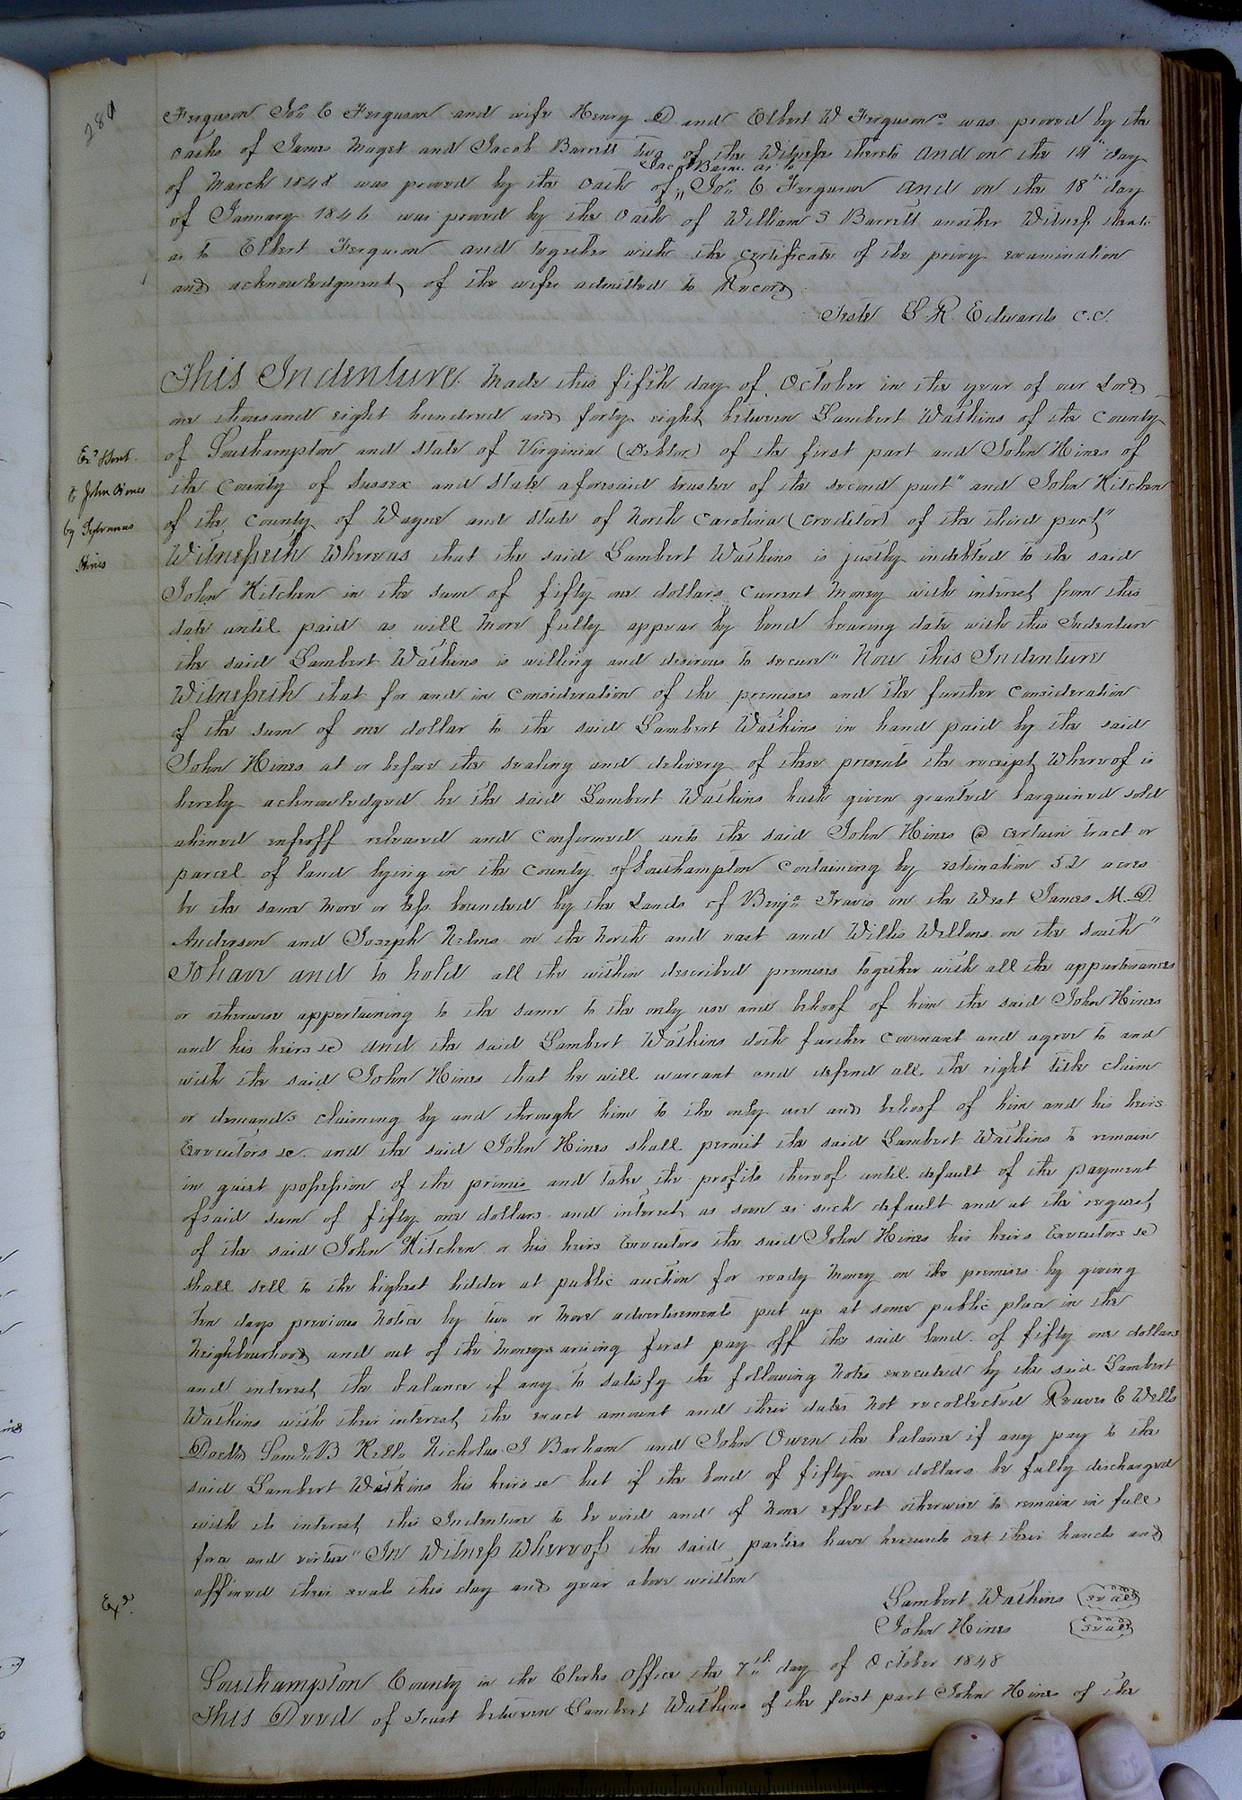 280
Ferguson Jno E Ferguson and wife Henry D and Elbert W Ferguson was proved by the
oaths of James Maget and Jacob Barrett two of the Witnesses thereto And on the 18th day
Jacob Barrett as to
of March 1848 was proved by the Oath of " Jno E Ferguson And on the 18th day
of January 1846 was proved by the Oath of William S Barrett another Witness thereto
as to Elbert Ferguson and together with the certificate of the privy examination
and acknowledgment of the wife admitted to Record
Teste L R Edwards C.C.
This Indenture Made this fifth day of October in the year of our Lord
one thousand eight hundred and forty eight between Lambert Watkins of the County
of Southampton and State of Virginia (Debtor) of the first part and John Hines of
the County of Sussex and State aforesaid trustee of the second part" and John Kitchen
of the County of Wayne and State of North Carolina (Creditor) of the third part"
Exd &
to John Hines
by
Hines
Witnesseth Whereas that the said Lambert Watkins is justly indebted to the said
John Kitchen in the sum of fifty one dollars current money with interest from this
date until paid as will more fully appear by bond bearing date with this Indenture
the said Lambert Watkins is willing and desirous to secure" Now this Indenture
Witnesseth that for and in consideration of the premises and the further consideration
of the sum of one dollar to the said Lambert Watkins in hand paid by the said
John Hines at or before the sealing and delivery of these presents the receipt Whereof is
hereby acknowledged he the said Lambert Watkins hath given granted bargained sold
aliened enfeoff released and conformed unto the said John Hines @ certain tract or
parcel of land lying in the County of Southampton containing by estimation 52 acres
be the same more or less bounded by the Lands of Benjn Travis on the West James M. D.
Anderson and Joseph Nelms on the North and east and Willis Wellons on the south"
To have and to hold all the within described premises together with all the appurtenances
or otherwise appertaining to the same to the only use and behoof of him the said John Hines
and his heirs &c And the said Lambert Watkins doth further covenant and agree to and
with the said John Hines that he will warrant and defend all the right title claim
or demands claiming by and through him to the only use and behoof of him and his heirs
Executors &c and the said John Hines shall permit the said Lambert Watkins to remain
in quiet possession of the premis and take the profits thereof until default of the payment
of said sum of fifty one dollars and interest as soon as such default and at the request
of the said John Kitchen or his heirs Executors the said John Hines his heirs Executors &c
shall sell to the highest bidder at public auction for ready money on the premises by giving
ten days previous notice by two or more advertisements put up at some public place in the
Neighbourhood and out of the moneys arising first pay off the said bond of fifty one dollars
and interest the balance if any to satisfy the following notes executed by the said Lambert
Watkins with their interest the exact amount and their dates not recollected Reaves E Wells
Saml B Kello Nicholas J Barham and John Owen the balance if any pay to the
said Lambert Watkins his heirs &c but if the bond of fifty one dollars be fully discharged
with its interest this Indenture to be void and of none effect otherwise to remain in full
force and virtue" In Witness Whereof the said parties have hereunto set their hands and
affixed their seals this day and year above written
Lambert Watkins (seal)
Exd.
John Hines (seal)
Southampton County in the Clerks Office the 7th day of October 1848
This Deed of Trust between Lambert Watkins of the first part John Hines of the